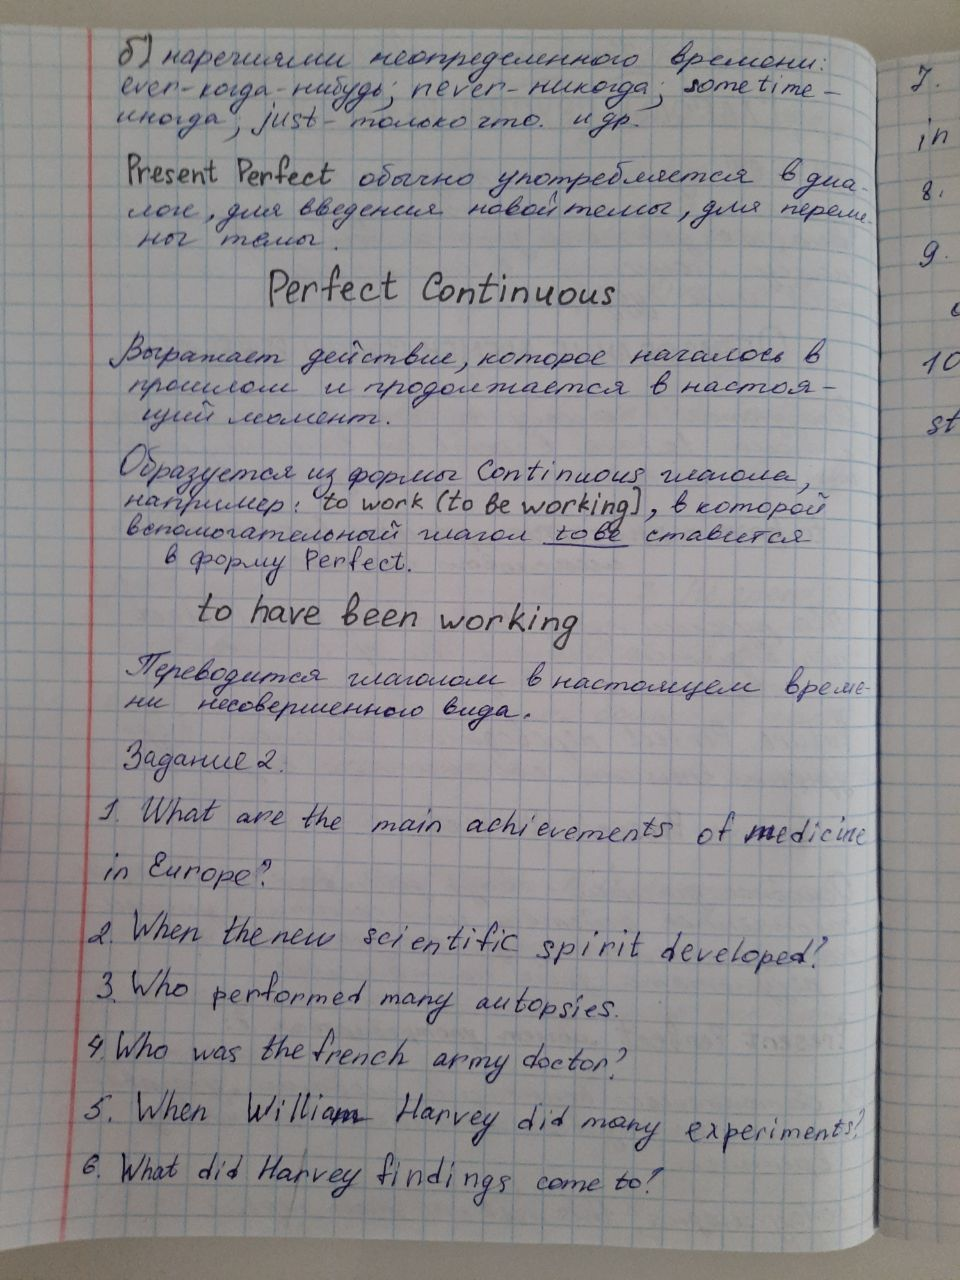 б) наречиями неопределенного времени:
ever-когда-нибудь; never-никогда; sometime-
иногда; just-только что. и др.
Present Perfect обычно употребляется в диа-
логе, для введения новой темы, для переме-
ны темы.
Perfect Continuous
Выражает действие, которое началось в
прошлом и продолжается в настоя-
щий момент.
Образуется из формы Continuous глагола,
например: to work (to be working], в которой
вспомогательный глагол to be ставится
в форму Perfect.
to have been working
Переводится глаголом в настоящем време-
ни несовершенного вида.
Задание 2.
1. What are the main achievements of medicine
in Europe?
2. When the new scientific spirit developed?
3. Who performed many autopsies.
4. Who was the french army doctor?
5. When William Harvey did many experiments?
6. What did Harvey findings come to?
7.
in
8.
9.
10
st